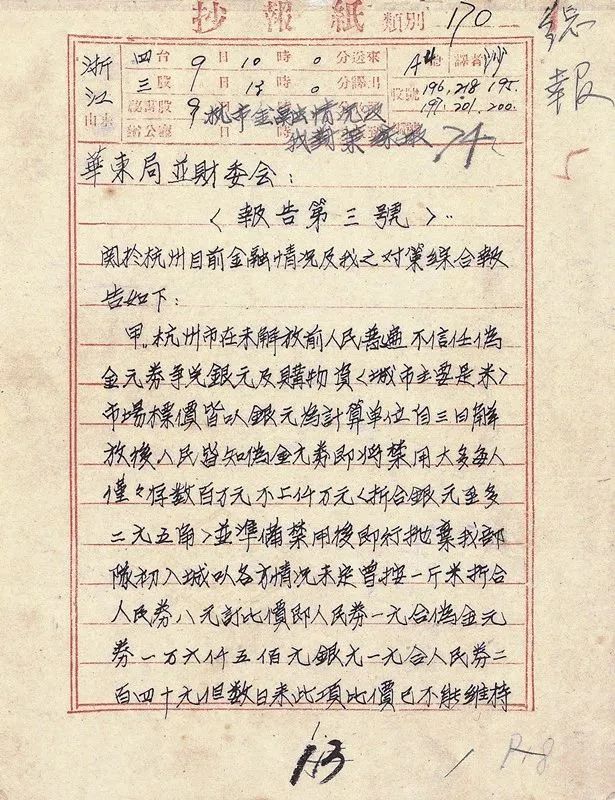 抄報紙 類別 170
總報
浙江
四台 9日10時0分送來
三股 9日13時0分譯出
譯者
收號 196. 218 195.
191. 201. 200.
杭市金融情况及
我對策綜報
74
5
華東局並財委会：
〈報告第三號〉..
関於杭州目前金融情况及我之对策綜合報
告如下：
甲。杭州市在未解放前人民普遍不信任偽
金元券争兑銀元及購物貨〈城市主要是米〉
市場標價皆以銀元為計算单位自三日解
放後人民皆知偽金元券即將禁用大多每人
僅々存数百万元不上仟万元〈折合銀元至多
二元五角〉並準備禁用後即行抛棄我部
隊初入城以各方情况未定曾按一斤米折合
人民券八元訂比價即人民券一元合偽金元
券一万六仟五佰元銀元一元合人民券二
百四十元但数日来此項比價已不能維持
13
P.8